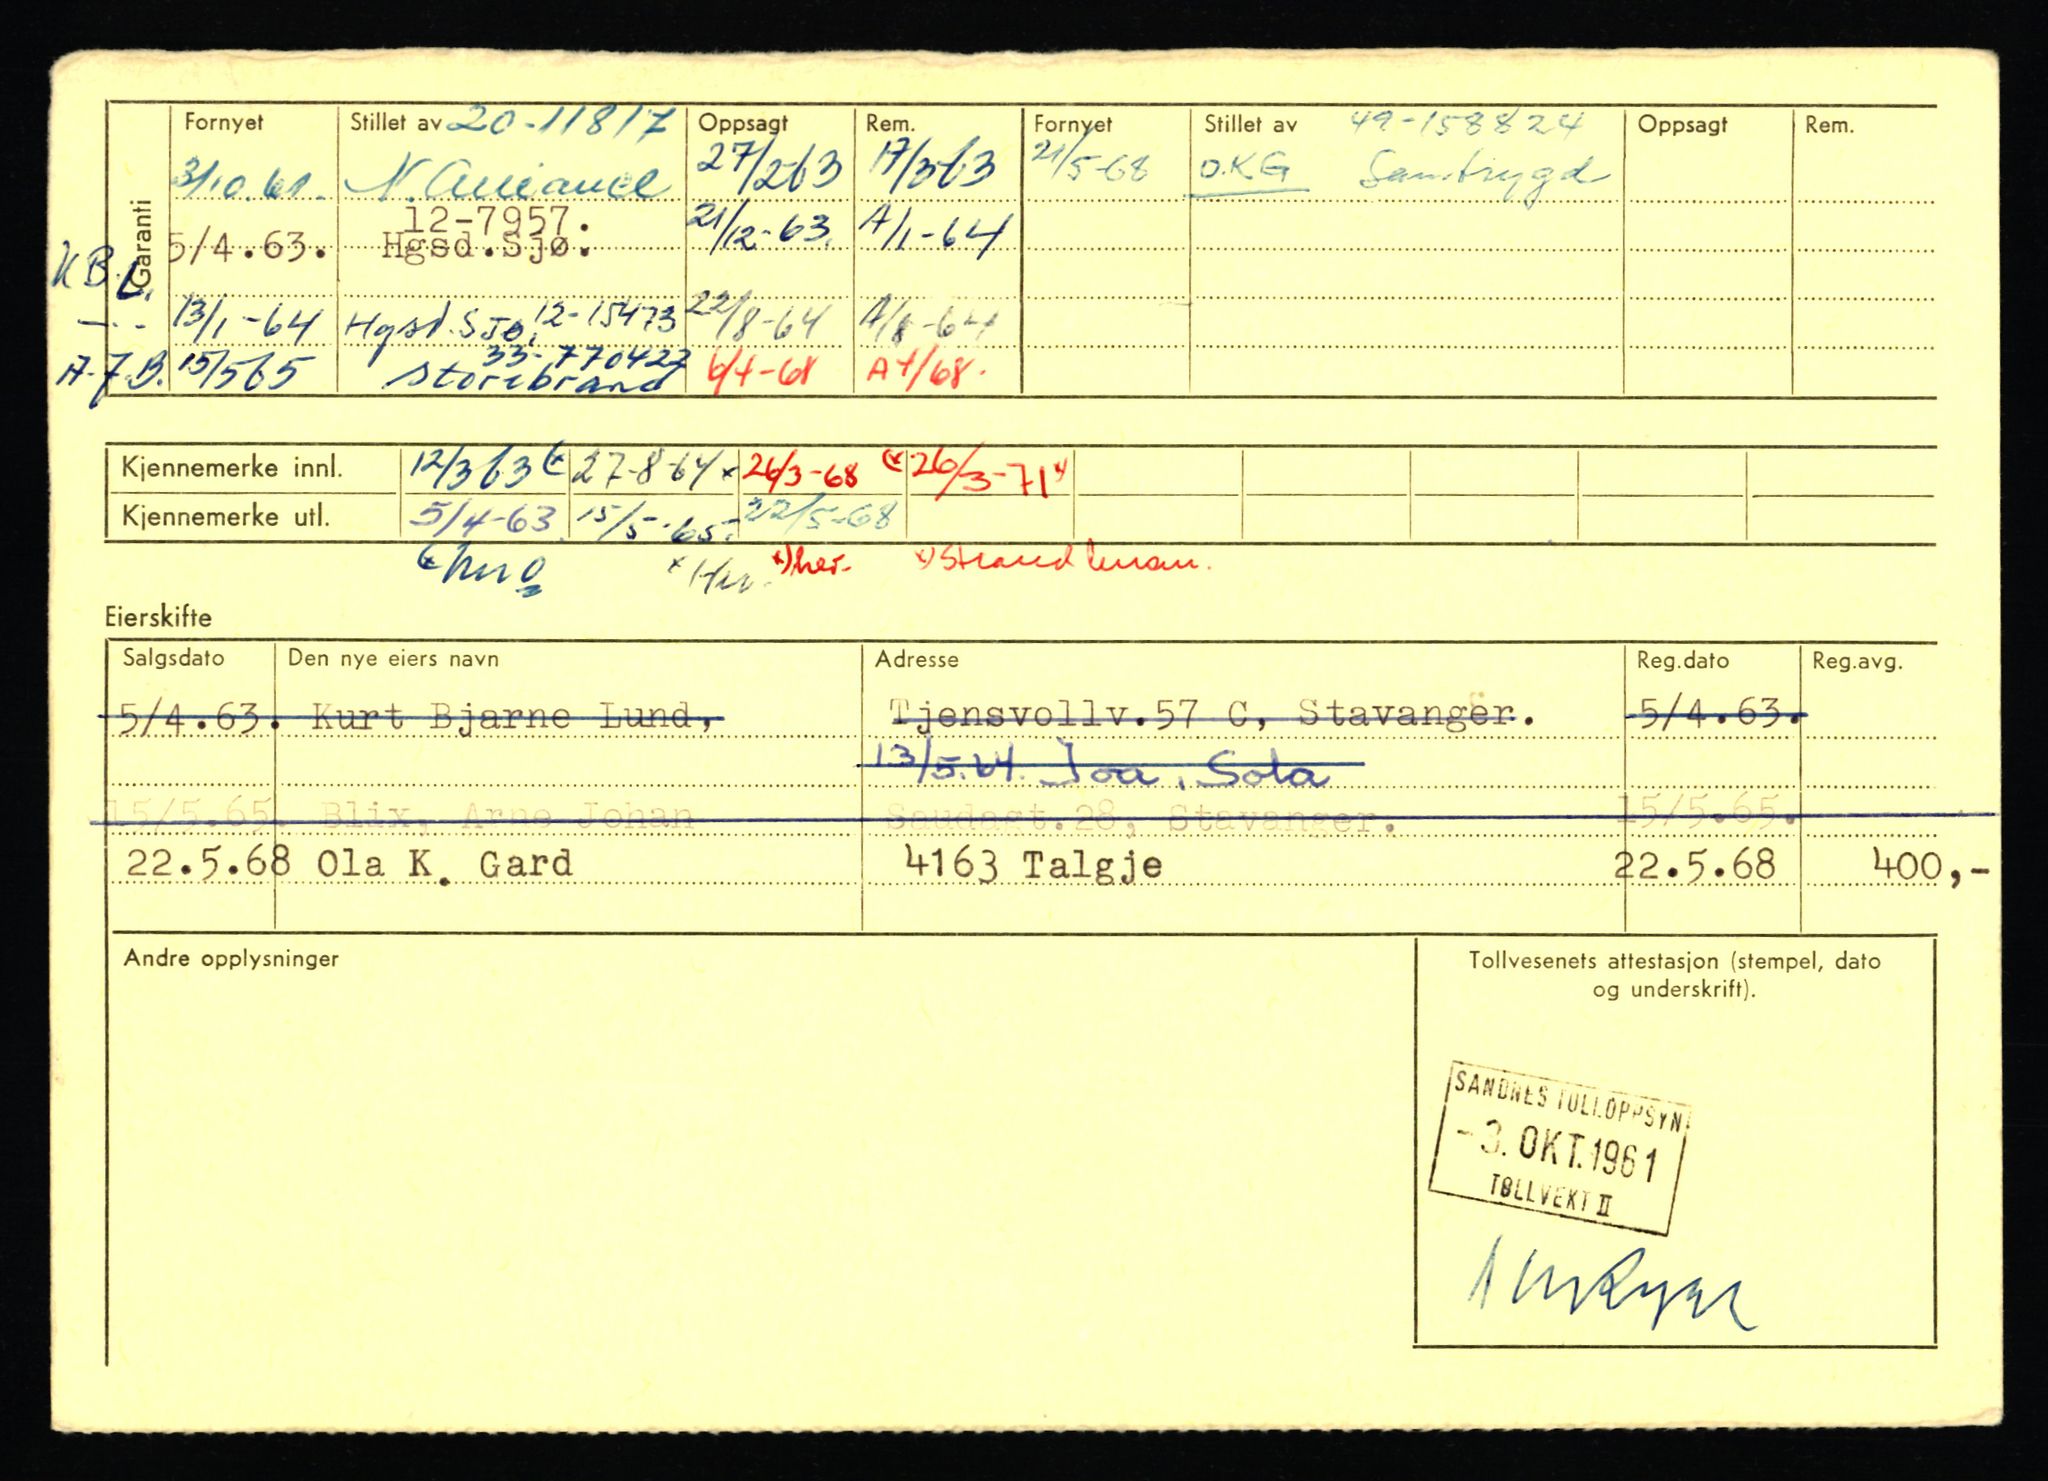 Garanti
Fornyet Stillet av 20-11817 Oppsagt Rem. Fornyet Stillet av 49-158824 Oppsagt Rem.
3/10.61. N. Alliance 27/263 17/363 21/5-68 O.K.G Samtrygd
12-7957.
5/4.63. Hgsd.Sjø. 21/12-63. A/1-64
K B L.
13/1-64 Hgsd. Sjø. 12-15473 22/8-64 A/8-64
33-770422
A.J.B. 15/565 Storebrand 6/4-68 A4/68.
Kjennemerke innl. 12/363 27-8-64 x 26/3-68 26/3-71
Kjennemerke utl. 5/4-63 15/5-65. 22/5-68
x)her.
Eierskifte
Salgsdato Den nye eiers navn Adresse Reg.dato Reg.avg.
5/4.63. Kurt Bjarne Lund, Tjensvollv.57 C, Stavanger. 5/4.63.
13/5.64. Joa, Sola
15/5.65. Blix, Arne Johan Saudagt.28, Stavanger. 15/5.65.
22.5.68 Ola K. Gard 4163 Talgje 22.5.68 400,-
Andre opplysninger
Tollvesenets attestasjon (stempel, dato
og underskrift).
SANDNES TOLLOPPSYN
-3. OKT. 1961
TOLLVEKT II